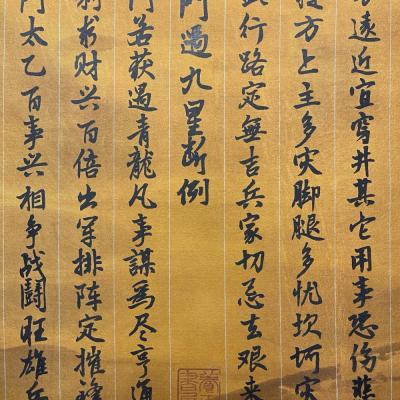 遠近宜穿井其它用事恐伤悲
方上主多灾脚腿多忧坎坷灾
行路定無吉兵家切忌去艰来
门遇九星断例
门若获遇青龍凡事謀為尽亨通
求财兴百倍出军排阵定摧锋
门太乙百事兴相争战鬪旺雄兵